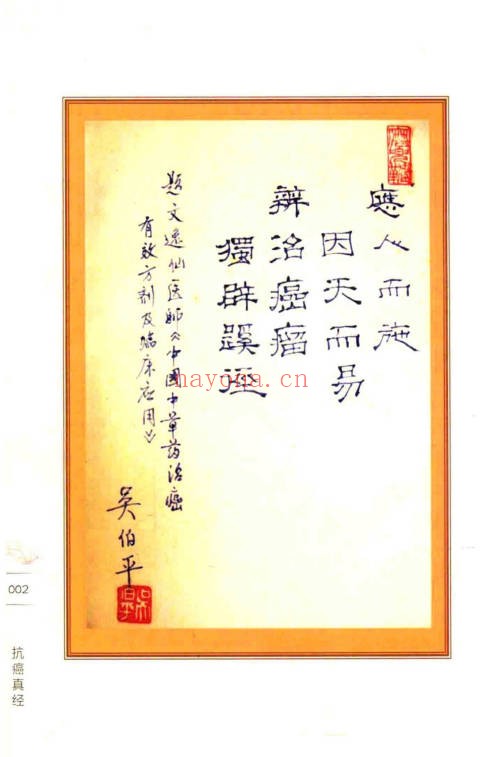 應人而施
因天而易
辨治癌瘤
獨辟蹊徑
题文逸仙医师《中国中草药治癌
有效方剂及临床应用》
吴伯平
吴伯平
nayona.cn
002
抗癌真经